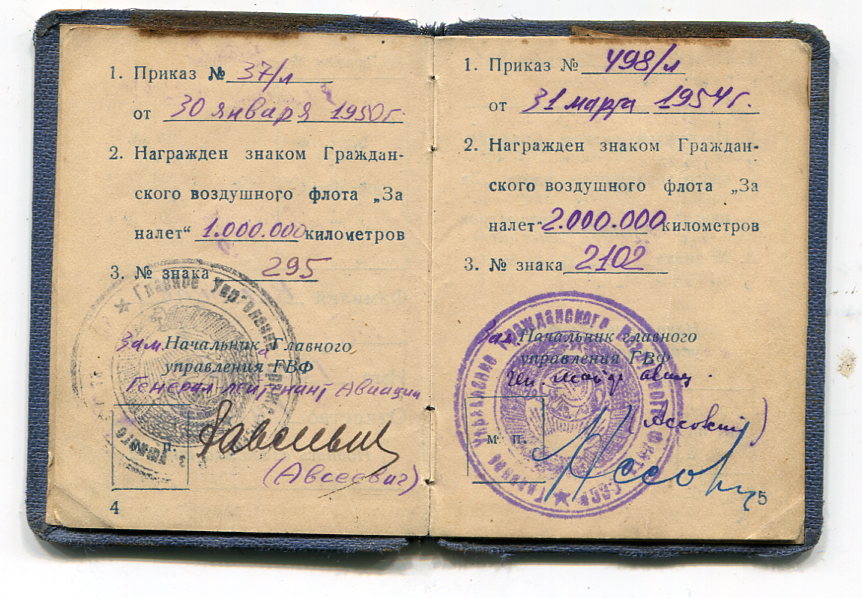 1. Приказ № 37/л
от 30 января 1950г.
2. Награжден знаком Граждан-
ского воздушного флота „За
налет“ 1.000.000 километров
3. № знака 295
Зам. Начальника Главного
управления ГВФ
Генерал-лейтенант Авиации
(Авсеевич)
4
1. Приказ № 498/л
от 31 марта 1954г.
2. Награжден знаком Граждан-
ского воздушного флота „За
налет“ 2.000.000 километров
3. № знака 2102
Зам. Начальник главного
управления ГВФ
м. п.
5
Главное управление Гражданского воздушного флота
СССР